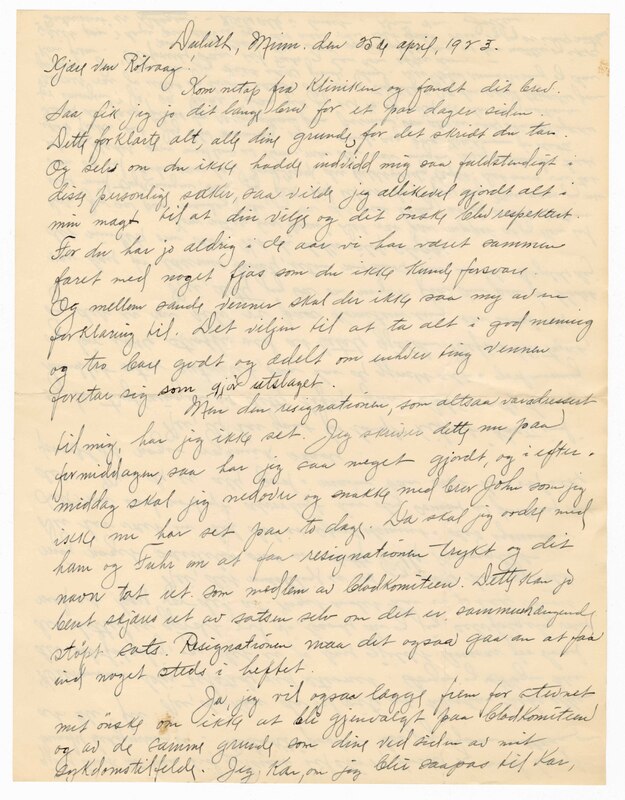 Duluth, Minn. den 25de april, 1923.
Kjære ven Rölvaag!
Kom netop fra Kliniken og fandt dit brev.
Saa fik jeg jo dit lange brev for et par dager siden.
Dette forklarte alt, alle dine grunde, for det skridt du tar.
Og selv om du ikke hadde indvidd mig saa fuldstendigt i
disse personlige saker, saa vilde jeg allikevel gjordt alt i
min magt til at din vilje og dit önske blev respektert.
For du har jo aldrig i de aar vi har været sammen
faret med noget fjas som du ikke kunde forsvare.
Og mellom sande venner skal der ikke saa my av en
forklaring til. Det viljen til at ta alt i god mening
og tro bare godt og ædelt om enhver ting vennen
foretar sig som gjör utslaget.
Men den resignationen, som altsaa var adressert
til mig, har jeg ikke set. Jeg skriver dette nu paa
formiddagen, saa har jeg saa meget gjordt, og i efter-
middag skal jeg nedover og snakke med bror John som jeg
ikke nu har set paa to dage. Da skal jeg ordne med
ham og Fuhr om at faa resignationen trykt og dit
navn tat ut som medlem av bladkomiteen. Dette kan jo
bent skjæres ut av satsen selv om det er sammenhængende
stöpt sats. Resignationen maa det ogsaa gaa an at faa
ind noget steds i heftet.
Ja jeg vil ogsaa lægge frem for stevnet
mit önske om ikke at bli gjenvalgt paa bladkomiteen
og av de samme grunde som dine ved siden av mit
sykdomstilfelde. Jeg kan, om jeg blir saapas til kar,